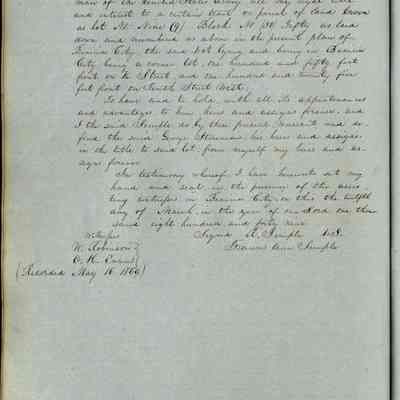 man of the United States Army all my right title
and interest to a certain tract or parcel of land known
as lot No Nine (9) Block No 50 Fifty as laid
down and numbered as above in the present plan of
Benicia City, the said lot lying and being in Benicia
City being a corner lot, one hundred and fifty feet
front on K Street, and one hundred and twenty five
feet front on Tenth Street West,
To have and to hold, with all its appurtenances
and advantages to him, heirs and assigns forever, and
I the said Semple do by these presents warrant and de-
fend the said George Stevenson his heirs and assigns
in the title to said lot, from myself my heirs and as-
signs forever
In testimony whereof I have hereunto set my
hand and seal in the presence of the assis-
ting witnesses in Benicia City on this the twelfth
day of March in the year of our Lord one thou-
sand eight hundred and forty nine
Witnesses Signed R. Semple L.S.
W. Robinson Frances Ann Semple
O. K.
(Recorded May 16, 1849)